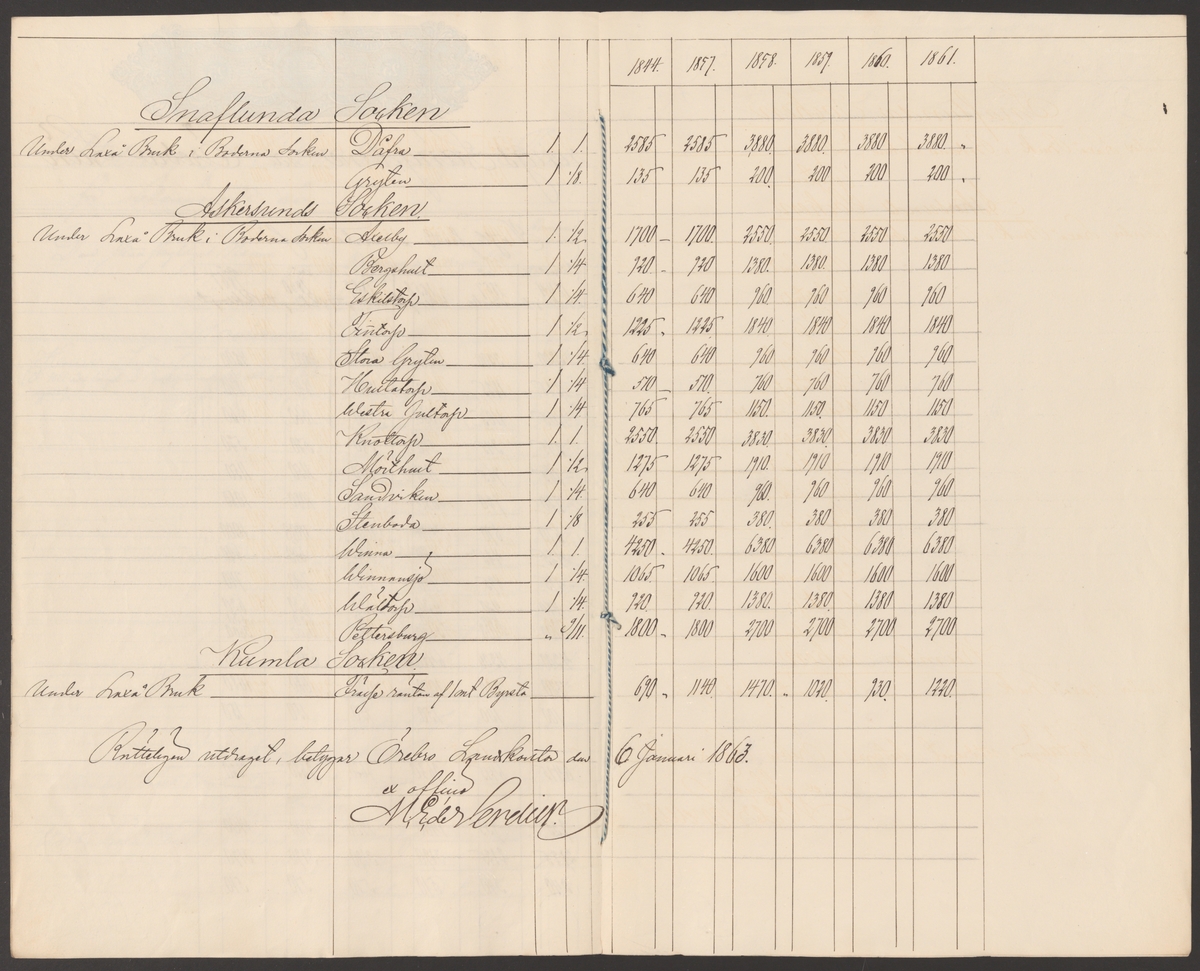 1844. 1857. 1858. 1859. 1860. 1861.
Snaflunda Socken
Under Laxå Bruk i Boderna Socken Dåfra 1 1. 2585 2585 3880. 3880. 3880 3880. "
Gryten 1 1/8. 135 135 200. 200 200 200 "
Askersunds Socken
Under Laxå Bruk i Boderna Socken Aselby 1. 1/2. 1700 – 1700. 2550. 2550. 2550 2550
Bergshult 1 1/4 920 – 920 1380. 1380. 1380 1380
Eskilstorp 1 1/4. 640 640 960. 960 960 960
Fintorp 1 1/2. 1225 " 1225 1840 1840 1840 1840
Stora Gryten 1 1/4. 640 640 960 960 960 960
Hultatorp 1 1/4 510 – 510. 760 760 760 760
Westra Jultorp 1 1/4 765 765 1150. 1150. 1150 1150
Knottorp 1. 1. 2550. 2550 3830. 3830. 3830 3830
Mörthult 1 1/2. 1275 1275 1910. 1910 1910 1910
Sandviken 1 1/4. 640 640 960. 960 960 960
Stenboda 1 1/8 255 255 380. 380 380 380
Winna 1 1. 4250. 4250. 6380 6380 6380 6380
Winnansjö 1 1/4. 1065. 1065 1600 1600 1600 1600
Wåltorp 1 1/4. 920. 920. 1380. 1380. 1380 1380
Pettersburg " 2/11. 1800 " 1800 2700 2700 2700 2700
Kumla Socken
Under Laxå Bruk räntan af 1 mt Byrsta 690 " 1140. 1470. " 1020. 930. 1220.
Rätteligen utdraget, betygar Örebro Landskontor den 6 Januari 1863.
ex officio